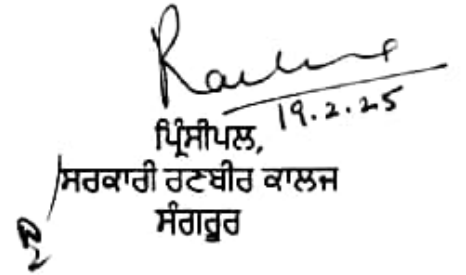 19.2.25
ਪ੍ਰਿੰਸੀਪਲ,
ਸਰਕਾਰੀ ਰਣਬੀਰ ਕਾਲਜ
ਸੰਗਰੂਰ